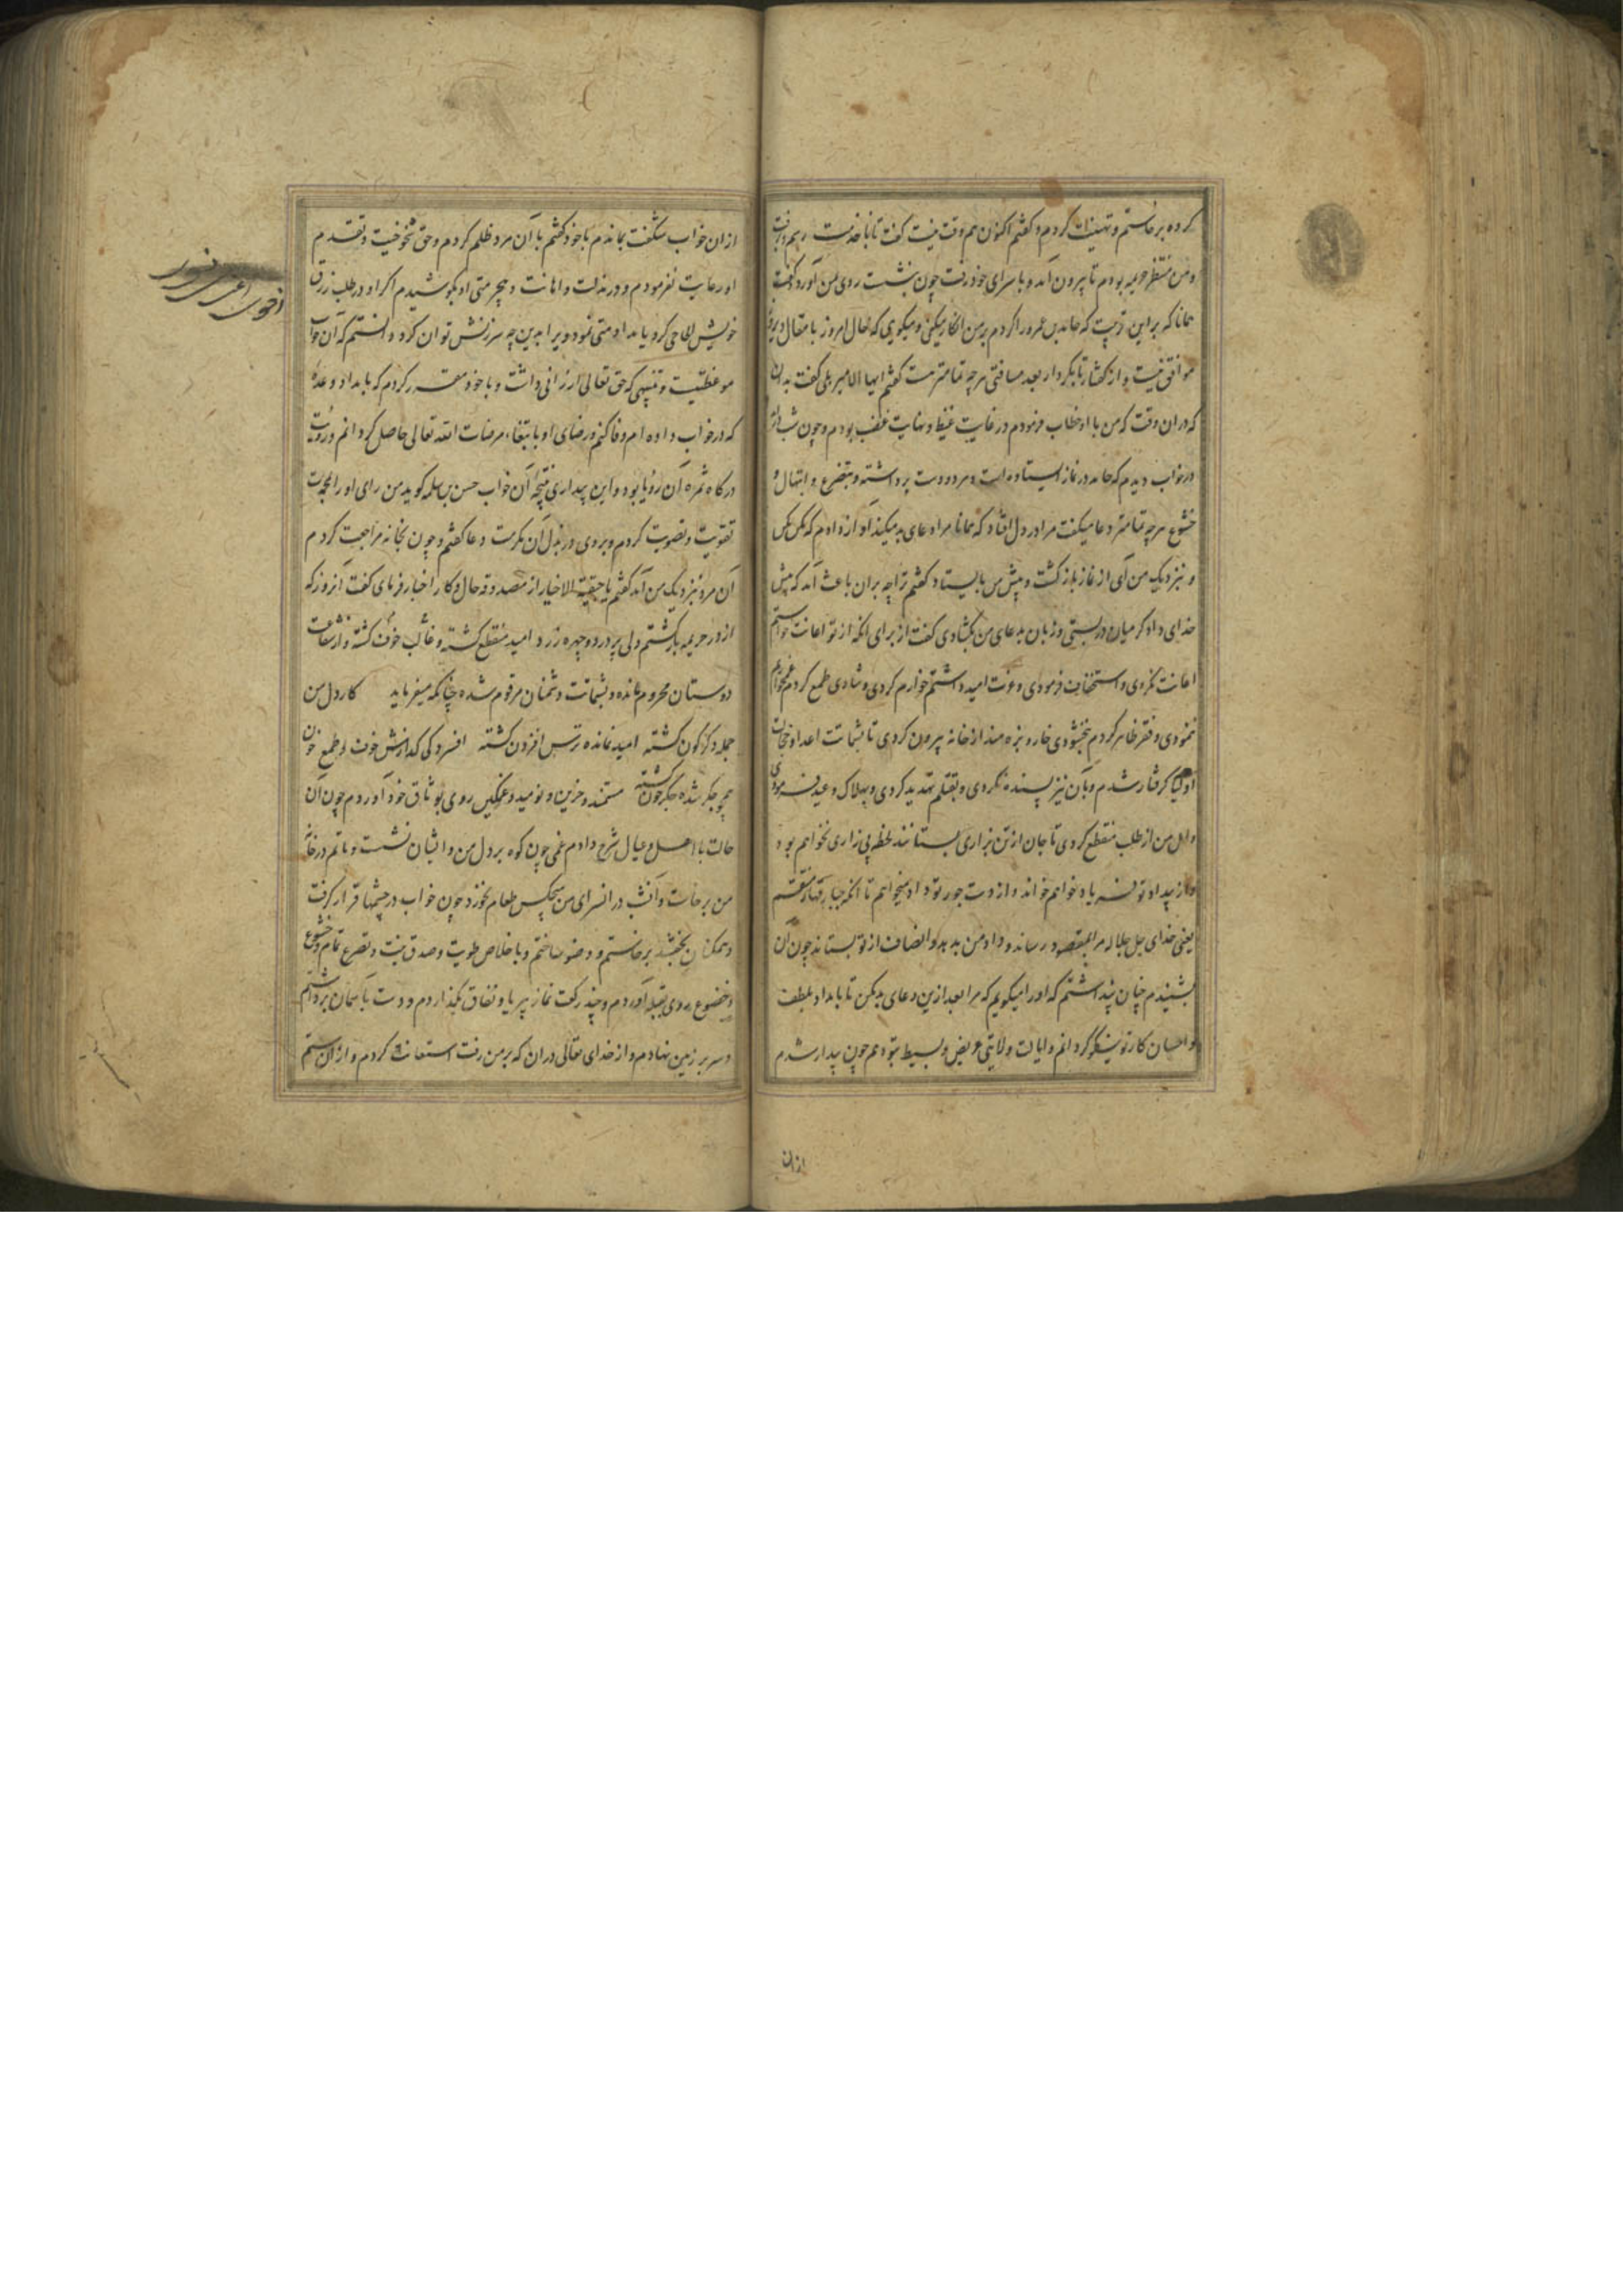 کرده برخاستم و تهنیت کردم و گفتم اکنون هم وقت نیست گفت تا با خدمت رسم و برفت
و من منتظر خزیمه بودم تا بیرون آمد و با سرای خود رفت چون بنشست روی بمن آورد و گفت
همانا که بر این ترتیب که حامد بن عمرو را کردم بر من انکار میکنی و میگویی که حال امروز با مقال دیروز
موافق نیست و از گفتار تا بکردار بعد مسافتی هرچه تمامتر هست گفتم ایها الامیر بلی گفت بدان
که در ان وقت که من با او خطاب فرمودم در غایت غیظ و نهایت غضب بودم و چون شب در آمد
در خواب دیدم که حامد در نماز ایستاده است و هر دو دست برداشته و بتضرع و ابتهال و
خشوع هرچه تمامتر دعا میگفت مرا در دل افتاد که همانا مرا دعای بد میکند آواز دادم که مکن مکن
و نزدیک من آی از نماز باز گشت و پیش من بایستاد گفتم ترا چه بران باعث آمد که پیش
خدای دادگر میان در بستی و زبان بدعای من بگشادی گفت از برای انکه از تو اعانت خواستم
اعانت نکردی و استخفاف فرمودی و عزت امید داشتم خوارم کردی و شادی طمع کردم غمخوارم
نمودی و فقر ظاهر کردم نبخشودی خار و بزه مند از خانه بیرون کردی تا بشماتت اعدا و خجالت
اولیا گرفتار شدم و بآن نیز پسنده نکردی و بقتلم تهدید کردی و بهلاک وعید فرمودی
و امل من از طلب منقطع کردی تا جان از تن بزاری بستانند لحظه بی زاری نخواهم بود
و از بیداد تو فریاد خواهم خواند و از دست جور تو داد میخواهم تا انکه جبار قهار منتقم
یعنی خدای جل جلاله مرا بمقصود رساند و داد من بدهد و انصاف از تو بستاند چون آن
بشنیدم چنان پنداشتم که او را میگویم که مرا بعد ازین دعای بد مکن تا بامداد بلطف
و احسان کار تو نیکو گردانم و ایالت ولایتی عریض و بسیط بتو دهم چون بیدار شدم
ازان
ازان خواب شگفت بماندم با خود گفتم با آن مرد ظلم کردم و حق شیخوخیت و تقدم
او رعایت نفرمودم و در مذلت و اهانت و بیحرمتی او بکوشیدم اگر او در طلب رزق
خویش الحاحی کرد یا بداد منتی نمود ویرا بدین چه سرزنش توان کرد و دانستم که آن خواب
موعظتیست و تنبیهی که حق تعالی ارزانی داشت و با خود مقرر کردم که بامداد وعده
که در خواب داده ام وفا کنم و رضای او بابتغاء مرضات الله تعالی حاصل گردانم و رؤیت
درگاه ثمره آن رؤیا بود و این بیداری نتیجه آن خواب حسن بن سلمه گوید من رای او را بمحمدت
تقویت و تصویب کردم و بر وی در بذل آن مکرمت دعا گفتم و چون بخانه مراجعت کردم
آن مرد نزدیک من آمد گفتم یا بقیة الاخیار از مصدوقه حال و کار اخبار فرمای گفت آنروز که
از در خزیمه باز گشتم دلی پر درد و چهره زرد امید منقطع گشته و غالب خوف گشته و از شفاعت
دوستان محروم مانده و بشماتت دشمنان مرقوم شده چنانکه میفرماید کار دل من
جمله دگرگون گشته امید نمانده ترس افزون گشته افسردگی گدازش خوف و طمع خون
همچو جگر شده جگر خون گشته مستمند و حزین و نومید و غمگین روی بوثاق خود آوردم چون آن
حالت با اهل و عیال شرح دادم غمی چون کوه بر دل من و ایشان نشست و ماتم در خانه
من برخاست و آنشب در انسرای من هیچکس طعام نخورد چون خواب در چشمها قرار گرفت
و همگنان بخفتند برخاستم و وضو ساختم و با خلاص طویت و صدق نیت و تضرع تمام و خشوع
و خضوع روی بقبله آوردم و چند رکعت نماز بی ریا و نفاق بگذاردم و دست بآسمان برداشتم
و سر بر زمین نهادم و از خدای تعالی دران که بر من رفت استعانت کردم و ازان ستم